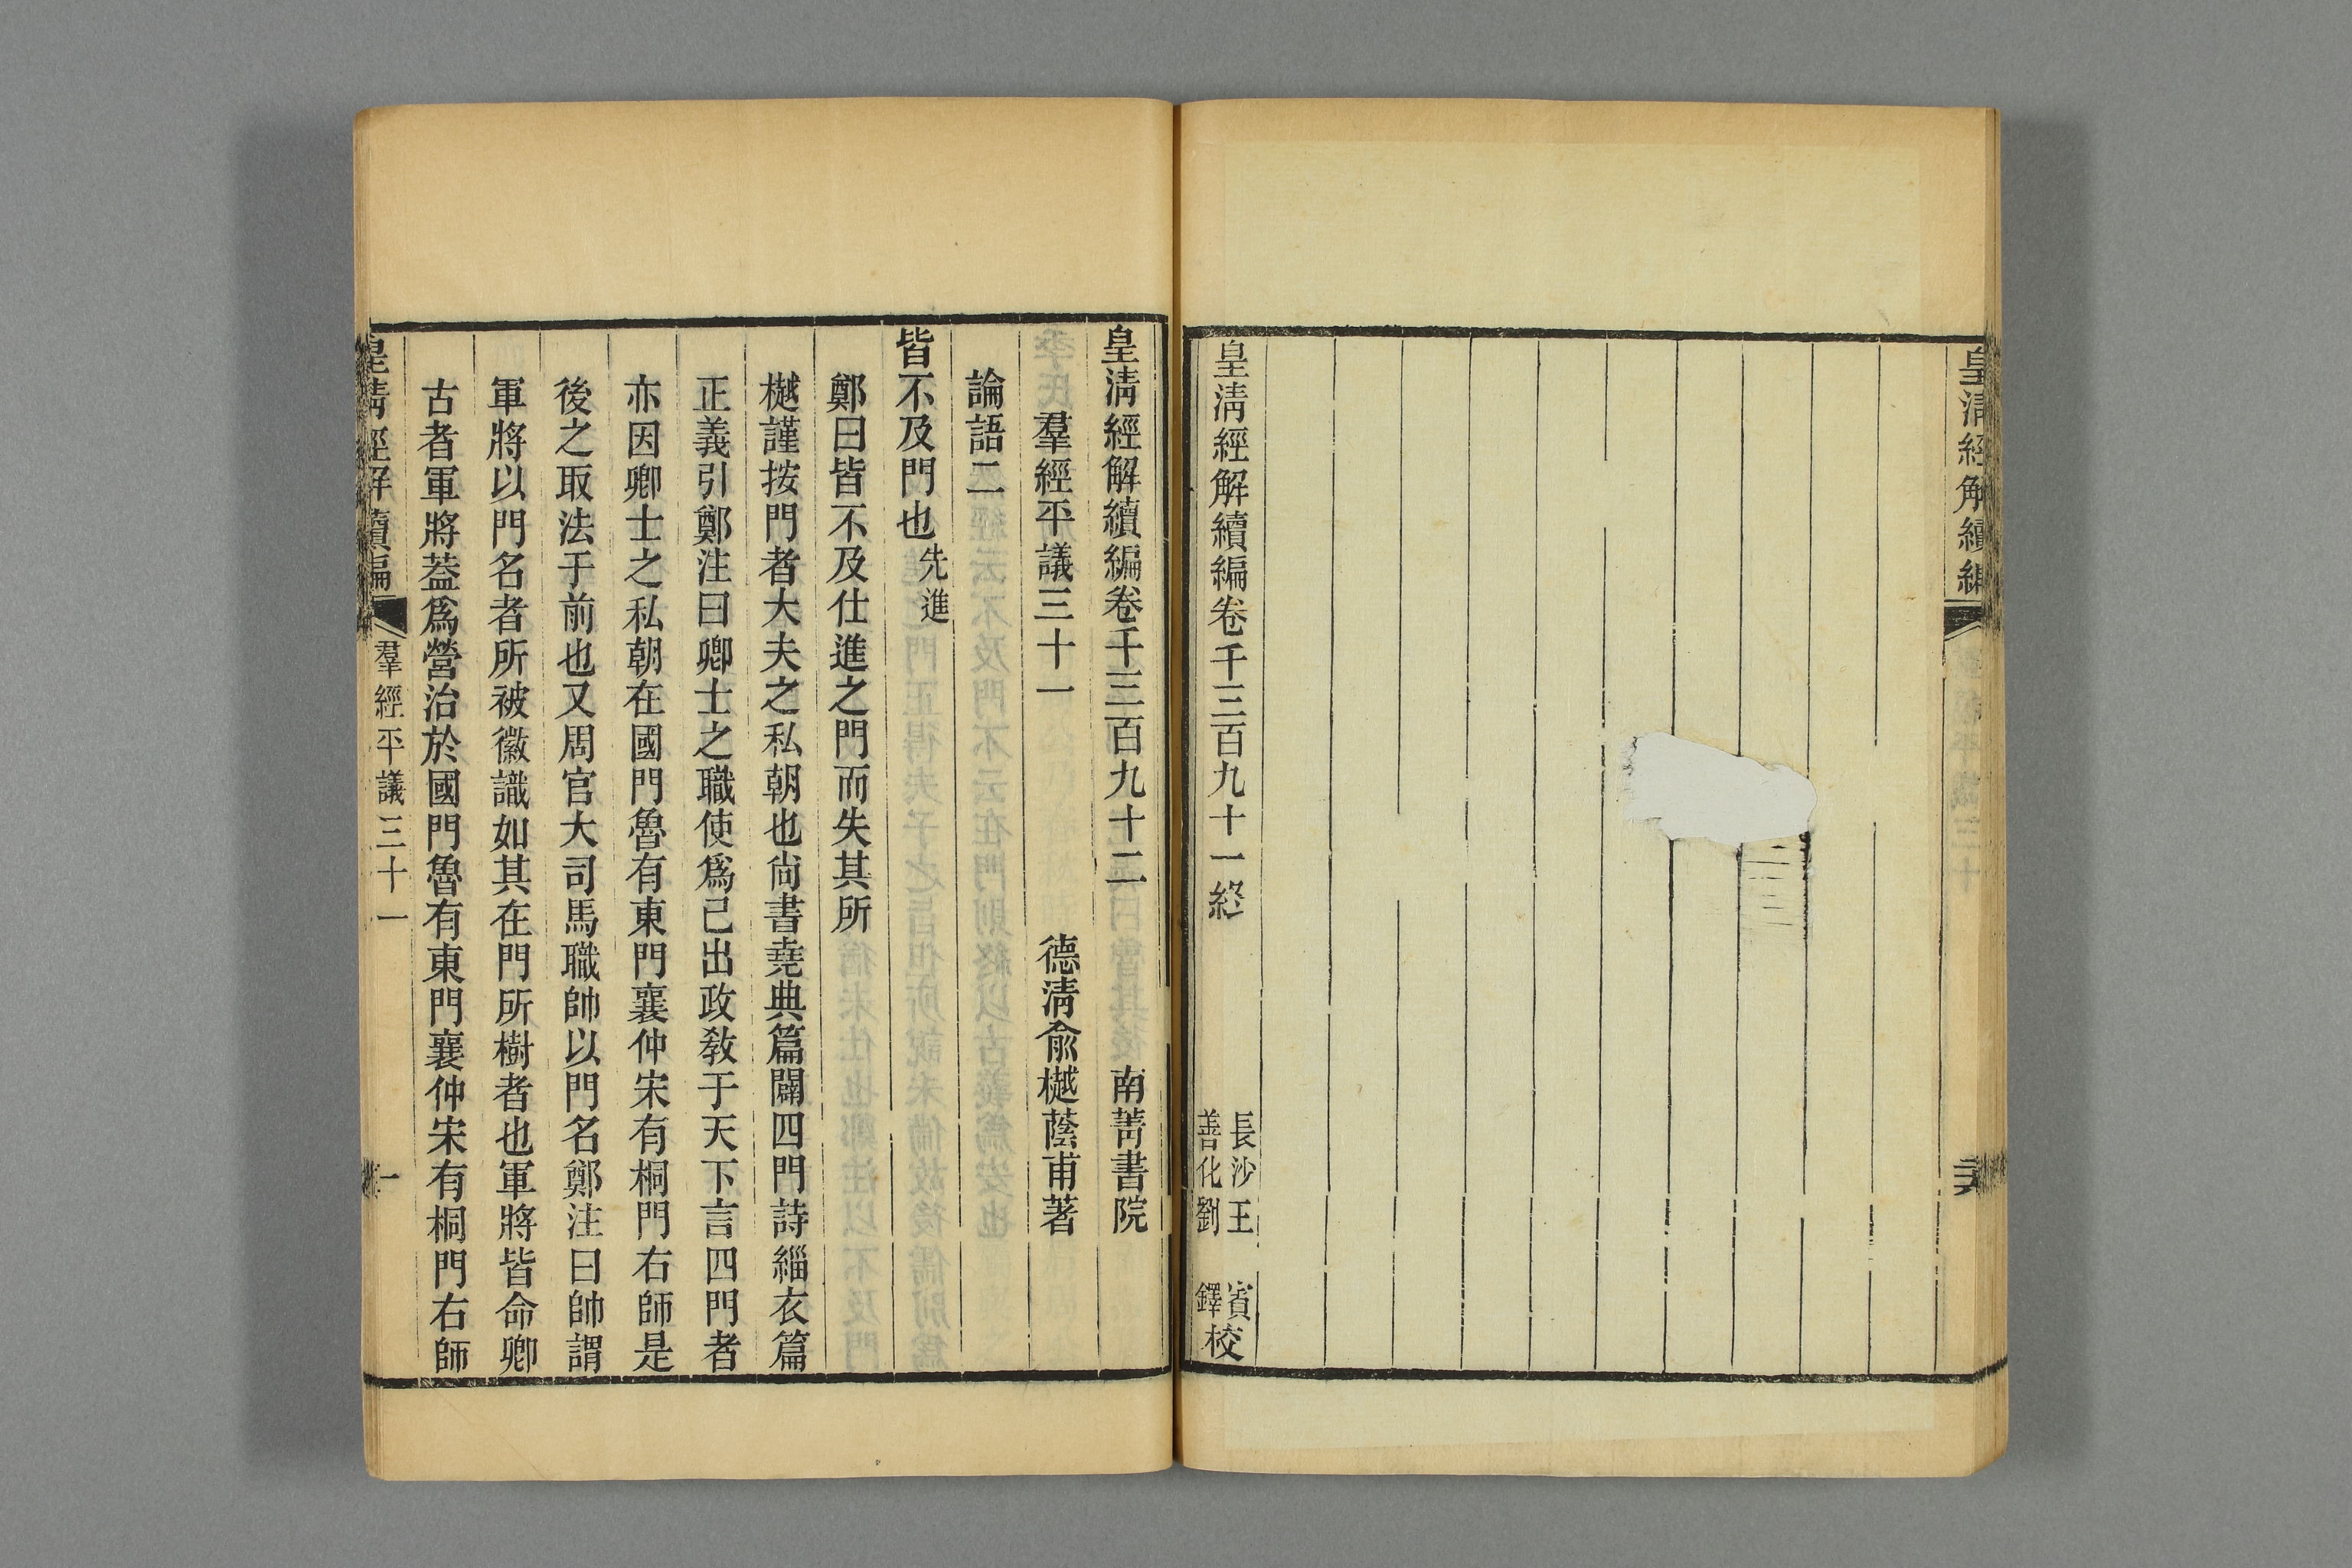 皇清經解續編
皇清經解續編卷千三百九十一終
長沙王 賓校
善化劉 鐸
皇清經解續編卷千三百九十二 南菁書院
羣經平議三十一 德清俞樾蔭甫著
論語二
皆不及門也先進
鄭曰皆不及仕進之門而失其所
樾謹按門者大夫之私朝也尚書堯典篇闢四門詩緇衣篇
正義引鄭注曰卿士之職使爲己出政教于天下言四門者
亦因卿士之私朝在國門魯有東門襄仲宋有桐門右師是
後之取法于前也又周官大司馬職帥以門名鄭注曰帥謂
軍將以門名者所被徽識如其在門所樹者也軍將皆命卿
古者軍將葢爲營治於國門魯有東門襄仲宋有桐門右師
皇清經解續編 羣經平議三十一 一